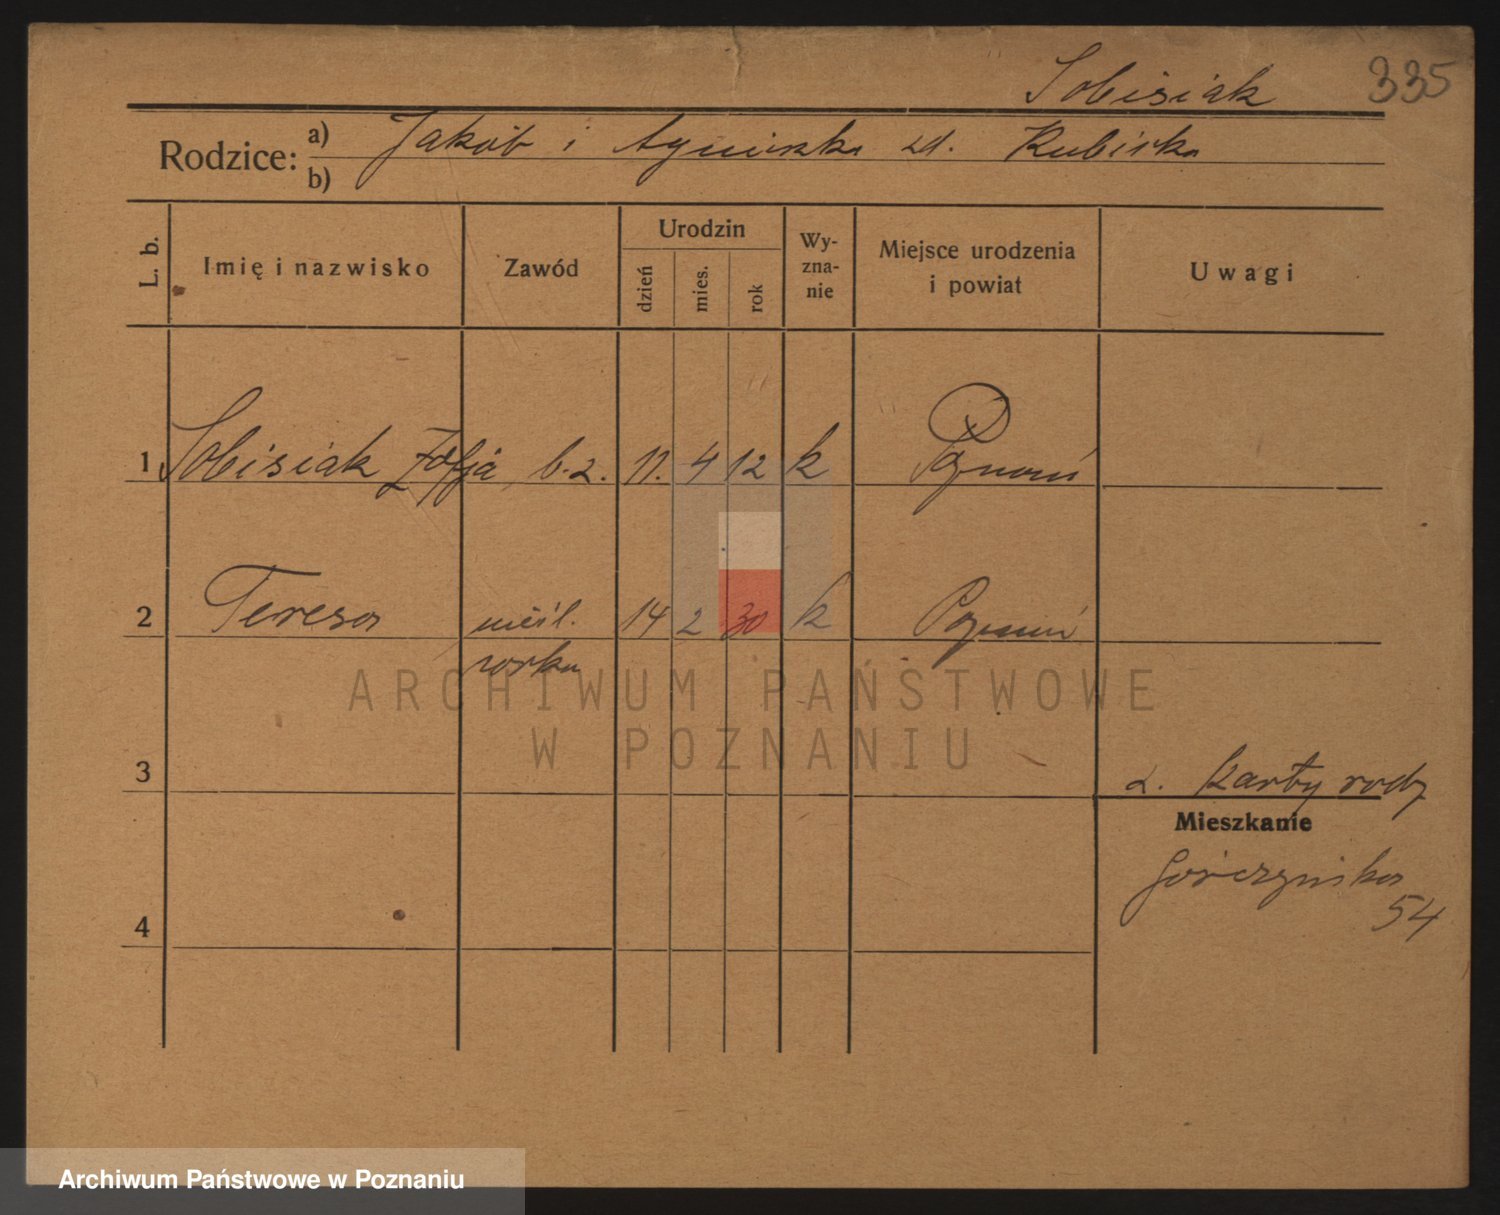 Sobisiak 335
Rodzice: a) Jakób i Agnieszka zd. Kubiska
b)
L. b. Imię i nazwisko Zawód Urodzin dzień mies. rok Wyznanie Miejsce urodzenia i powiat Uwagi
1 Sobisiak Zofja b. z. 11. 4 12 k Poznań
2 Teresa nieśl. 14 2 30 k Poznań
córka
ARCHIWUM PAŃSTWOWE
W POZNANIU
3 z. Karty rodz
Mieszkanie
Górczyńska
54
4
Archiwum Państwowe w Poznaniu